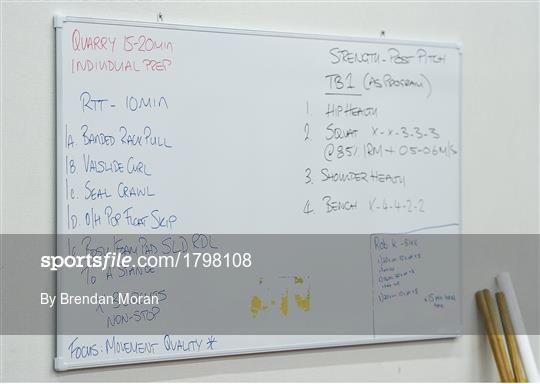 QUARRY 15-20MIN
INDIVIDUAL PREP
RTT - 10MIN
1A. BANDED RACK PULL
1B. VALSLIDE CURL
1C. SEAL CRAWL
1D. O/H POP FLOAT SKIP
PAD SLD RDL
TO A STANCE
NON-STOP
FOCUS: MOVEMENT QUALITY *
STRENGTH - POST PITCH
TB1 (AS PROGRAM)
1 HIP HEALTH
2 SQUAT X-X-3-3-3
@85% 1RM + 0.5-0.6M/S
3. SHOULDER HEALTH
4. BENCH X-4-4-2-2
ROB K
sportsfile.com/id/1798108
By Brendan Moran